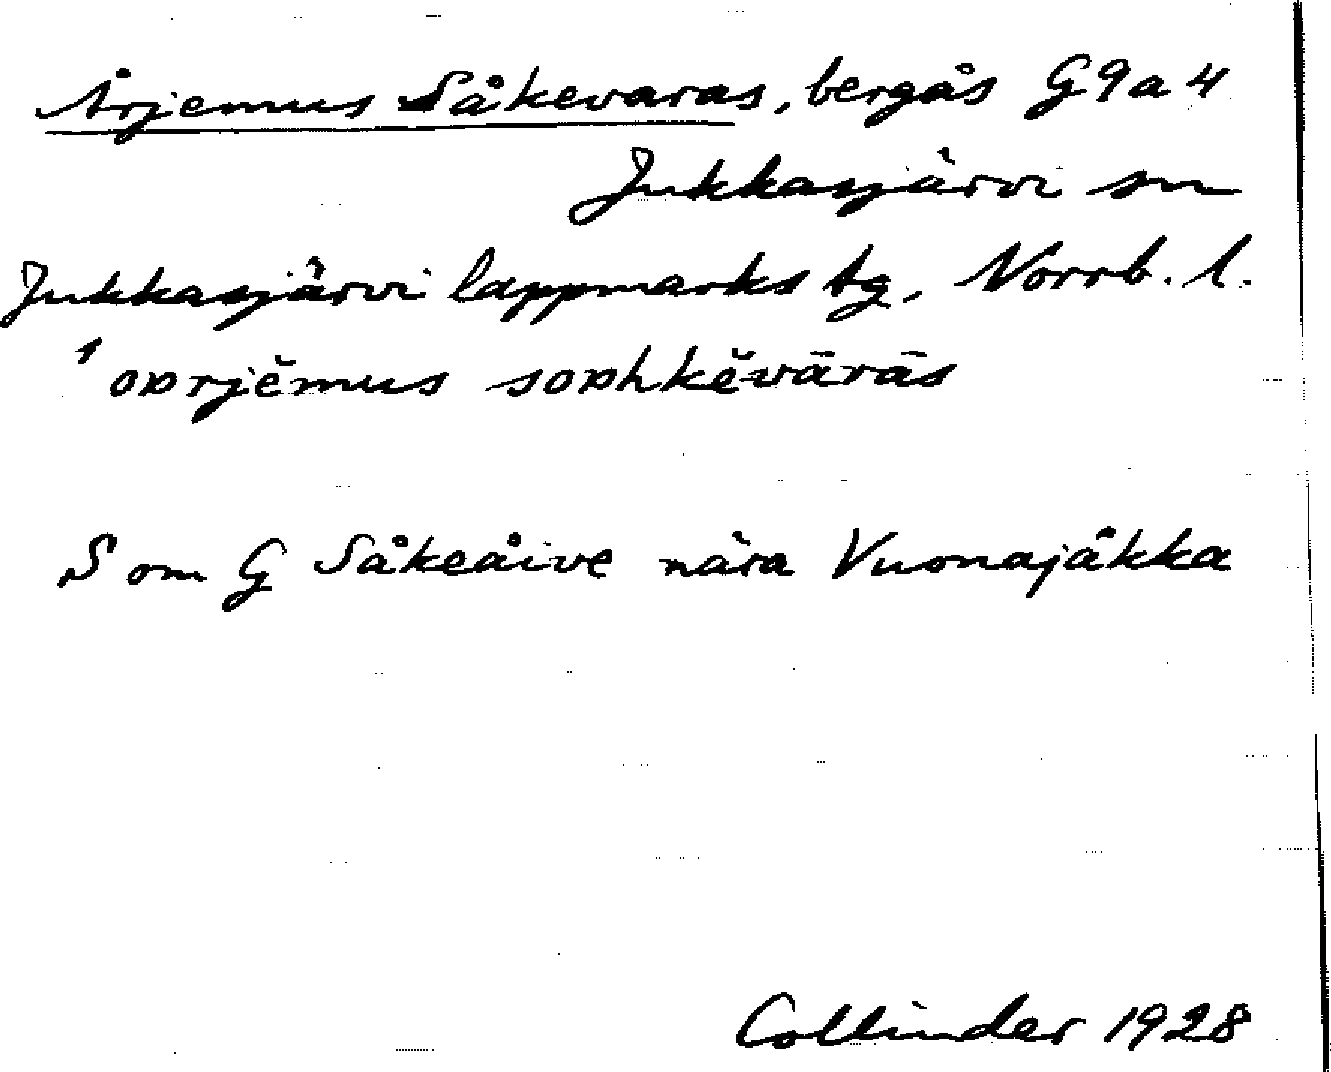 Årjemus Såkevaras, bergås G9a4
Jukkasjärvi sn
Jukkasjärvi lappmarks tg, Norrb. l.
'oɒrjĕmus soɒhkĕvārās
S om G Såkeåive nära Vuonajåkka
Collinder 1928